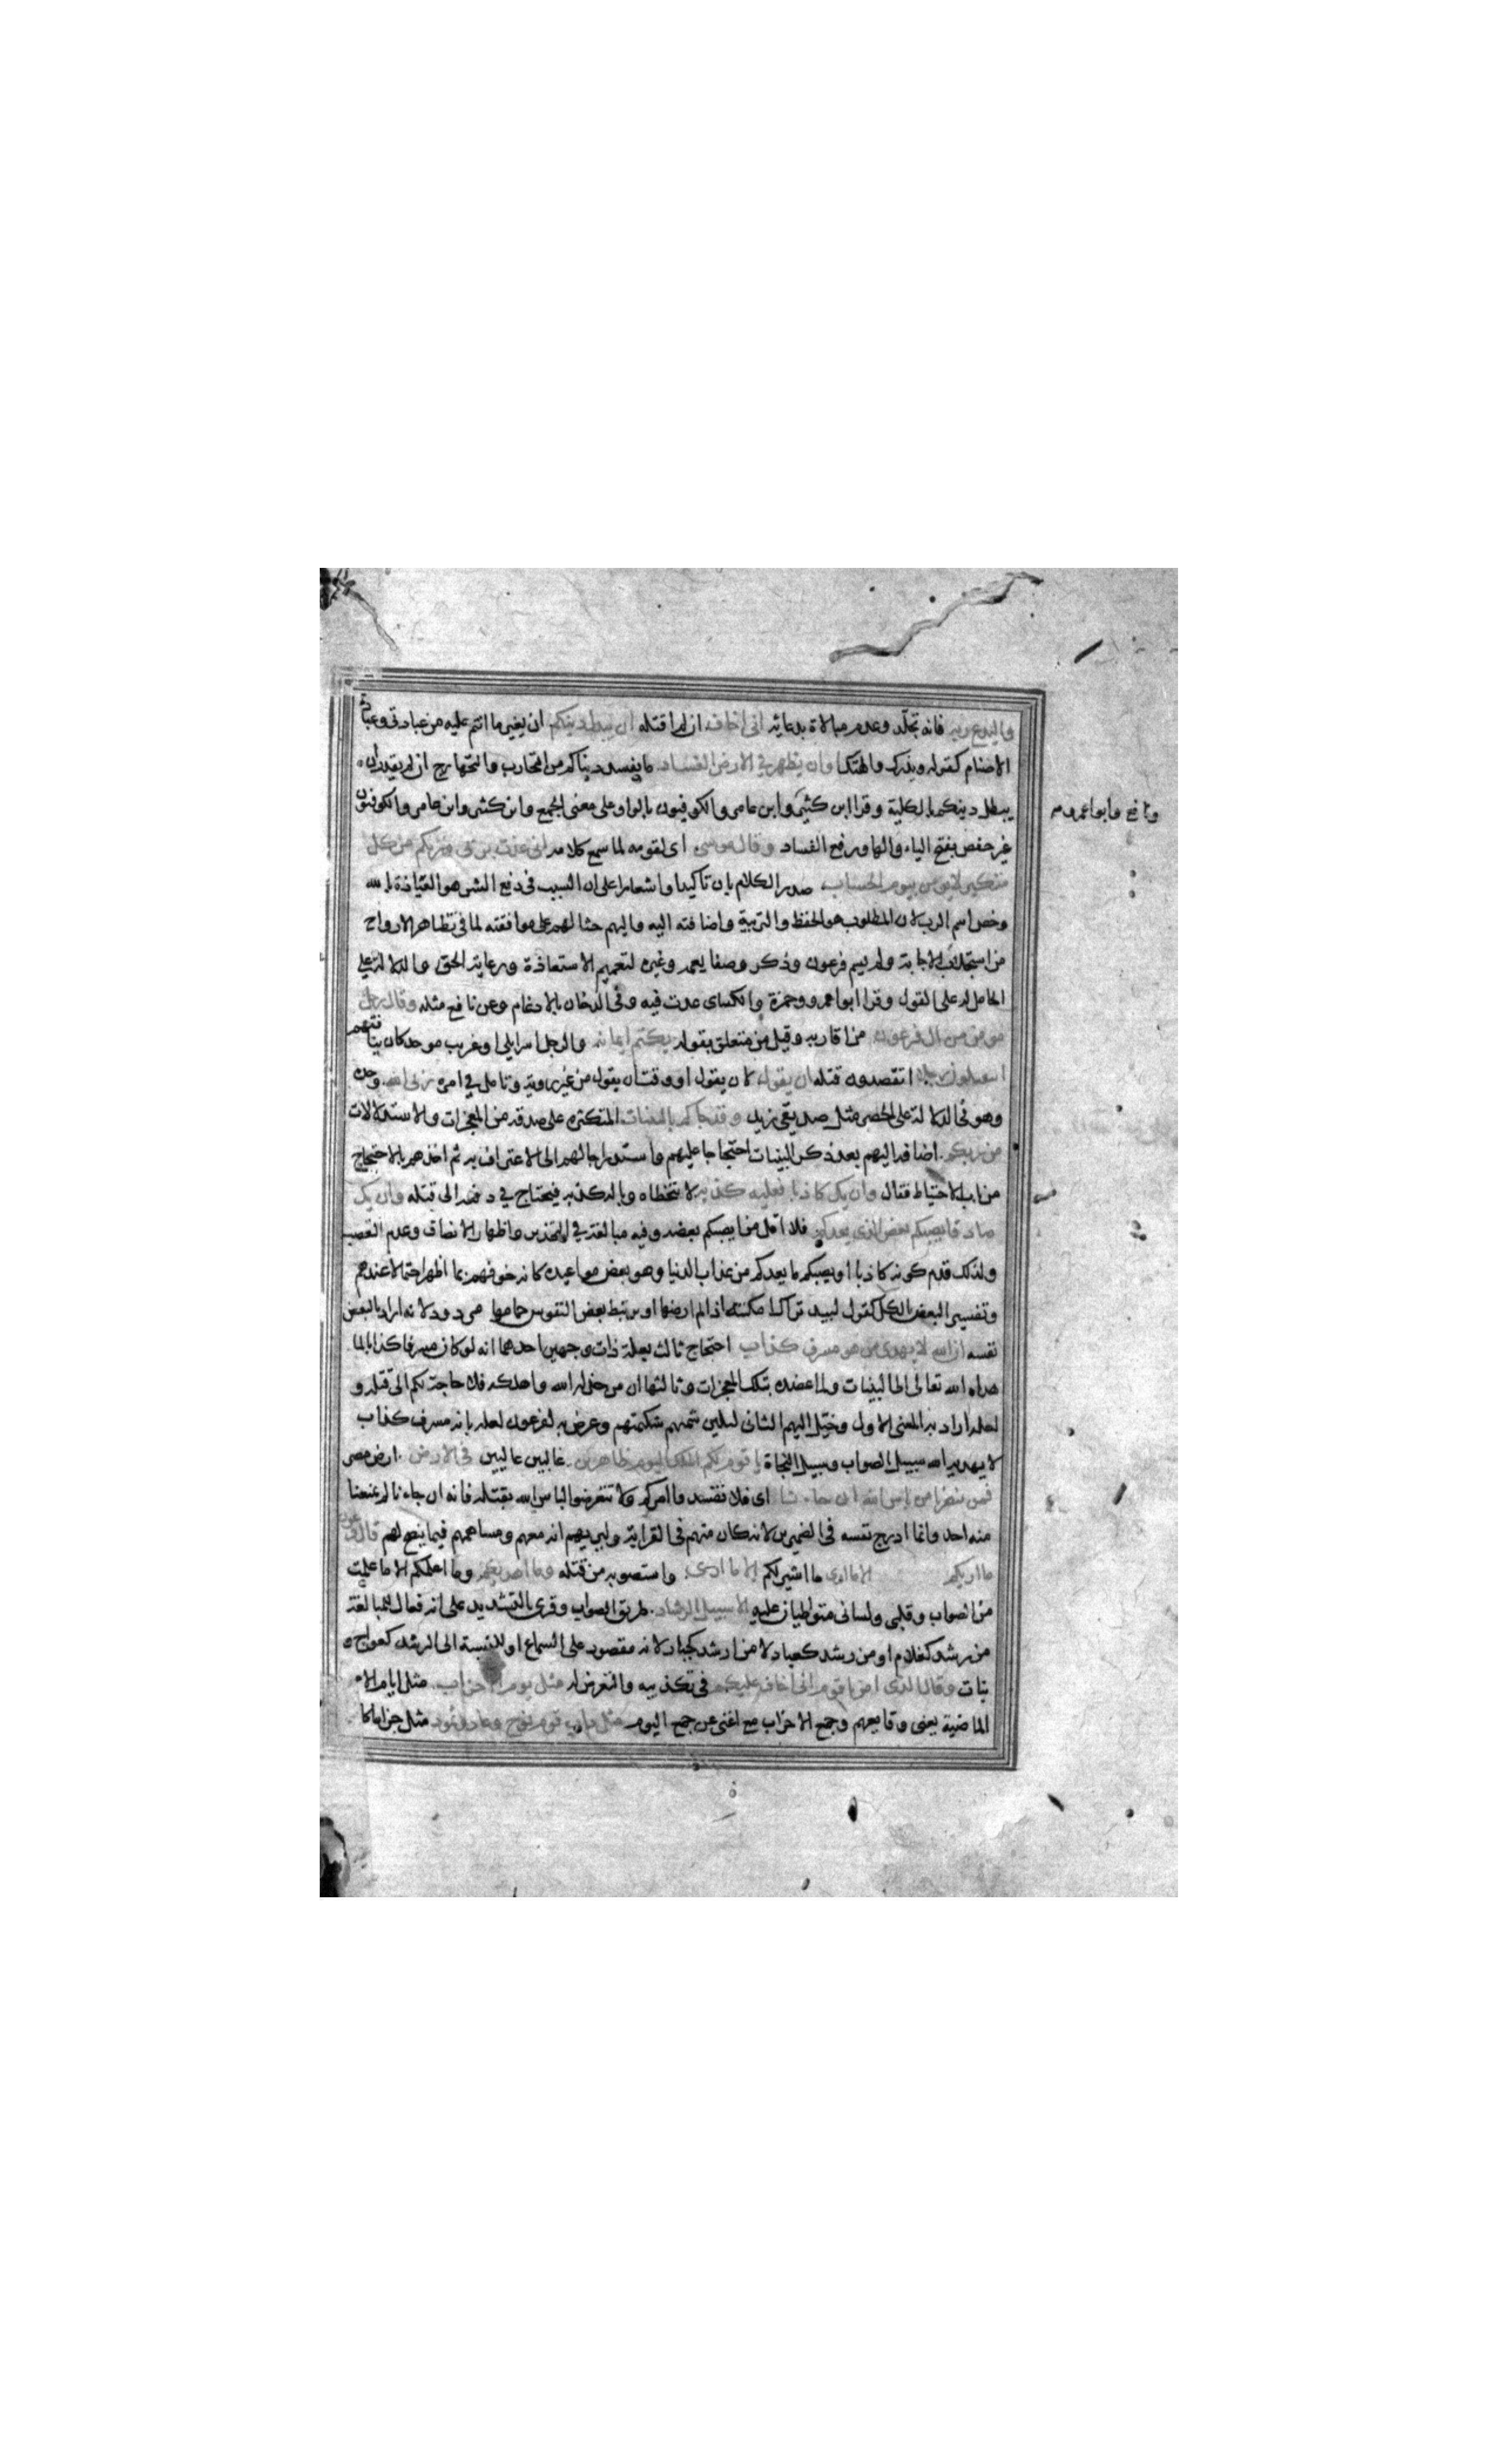 وليدع ربه فانه تجلّد وعدم مبالاة بدعائه انى اخاف ان لم اقتله ان يبدل دينكم ان يغير ما انتم عليه من عبادتى وعبادة
الاصنام كقوله ويذرك والهتك او ان يظهر في الارض الفساد ما يفسد دنياكم من التحارب والتهارج ان لم يقدر ان
يبطل دينكم بالكلية وقرا ابن كثير وابن عامر والكوفيون بالواو على معنى الجمع وابن كثير وابن عامر والكوفيون
ونافع وابو عمرو م
غير حفص بفتح الياء والها ورفع الفساد وقال موسى اى لقومه لما سمع كلامه انى عذت بربى وربكم من كل
متكبر لا يؤمن بيوم الحساب صدر الكلام بان تاكيدا واشعارا على ان السبب فى دفع الشر هو العياذة بالله
وخص اسم الرب لان المطلوب هو الحفظ والتربية واضافته اليه واليهم حثا لهم على موافقته لما فى تظاهر الارواح
من استجلاب الاجابة ولم يسم فرعون وذكر وصفا يعمه وغيره لتعميم الاستعاذة ورعاية الحق والدلالة على
الحامل له على القول وقرا ابو عمرو وحمزة والكساى عدت فيه وفى الدخان بالادغام وعن نافع مثله وقال رجل
مومن من ال فرعون من اقاربه وقيل من متعلق بقوله يكتم ايمانه والرجل اسرايلى او غريب موحد كان ينافقهم
اتقتلون رجلا اتقصدون قتله ان يقول لان يقول او وقت ان يقول من غير روية وتامل في امره ربى الله وحده
وهو فى الدلالة على الحصر مثل صديقى زيد وقد جاكم بالبينات المتكثرة على صدقه من المعجزات والاستدلالات
من ربكم اضافه اليهم بعد ذكر البينات احتجاجا عليهم واستدراجا لهم الى الاعتراف به ثم اخذهم بالاحتجاج
من باب الاحتياط فقال وان يك كاذبا فعليه كذبه لا يتخطاه وبال كذبه فيحتاج في دفعه الى قتله وان يك
صادقا يصبكم بعض الذى يعدكم فلا اقل من ان يصبكم بعضه وفيه مبالغة في التحذير واظهار الانصاف وعدم التعصب
ولذلك قدم كونه كاذبا او يصبكم ما يعدكم من عذاب الدنيا وهو بعض مواعيده كانه خوفهم بما اظهر احتمالا عندهم
وتفسير البعض بالكل كقول لبيد تراك امكنة اذا لم ارضها او يرتبط بعض النفوس حمامها مردود لانه اراد بالبعض
نفسه ان الله لا يهدى من هو مسرف كذاب احتجاج ثالث بعلة ذات وجهين احدهما انه لو كان مسرفا كذابا لما
هداه الله تعالى الى البينات ولما عضده بتلك المعجزات وثانيها ان من خذله الله واهلكه فلا حاجة لكم الى قتله و
لعله اراد به المعنى الاول وخيّل اليهم الثانى لتلين شكيمتهم وعرض به لفرعون لعله بانه مسرف كذاب
لا يهديه الله سبيل الصواب وسبيل النجاة يا قوم لكم الملك اليوم ظاهرين غالبين عالين فى الارض ارض مصر
فمن ينصرنا من باس الله ان جاءنا اى فلا تفسدوا امركم ولا تتعرضوا لباس الله بقتله فانه ان جاءنا لم يمنعنا
منه احد وانما ادرج نفسه فى الضميرين لانه كان منهم فى القرابة وليريهم انه معهم ومساهمهم فيما ينصح لهم قال فرعون
ما اريكم الا ما ارى ما اشير لكم الا ما ارى واستصوبه من قتله وما اهديكم وما اعلمكم الا ما علمت
من الصواب وقلبى ولسانى متواطيان عليه الا سبيل الرشاد طريق الصواب وقرى بالتشديد على انه فعال للمبالغة
من رشد كعلام او من رشد كعباد لا من ارشد كجبار لانه مقصور على السماع او للنسبة الى الرشد كعواج و
بتات وقال الذى امن يا قوم انى اخاف عليكم فى تكذيبه والتعرض له مثل يوم الاحزاب مثل ايام الامم
الماضية يعنى وقايعهم وجمع الاحزاب مع اغنى عن جمع اليوم مثل داب قوم نوح وعاد وثمود مثل جزا ما كا